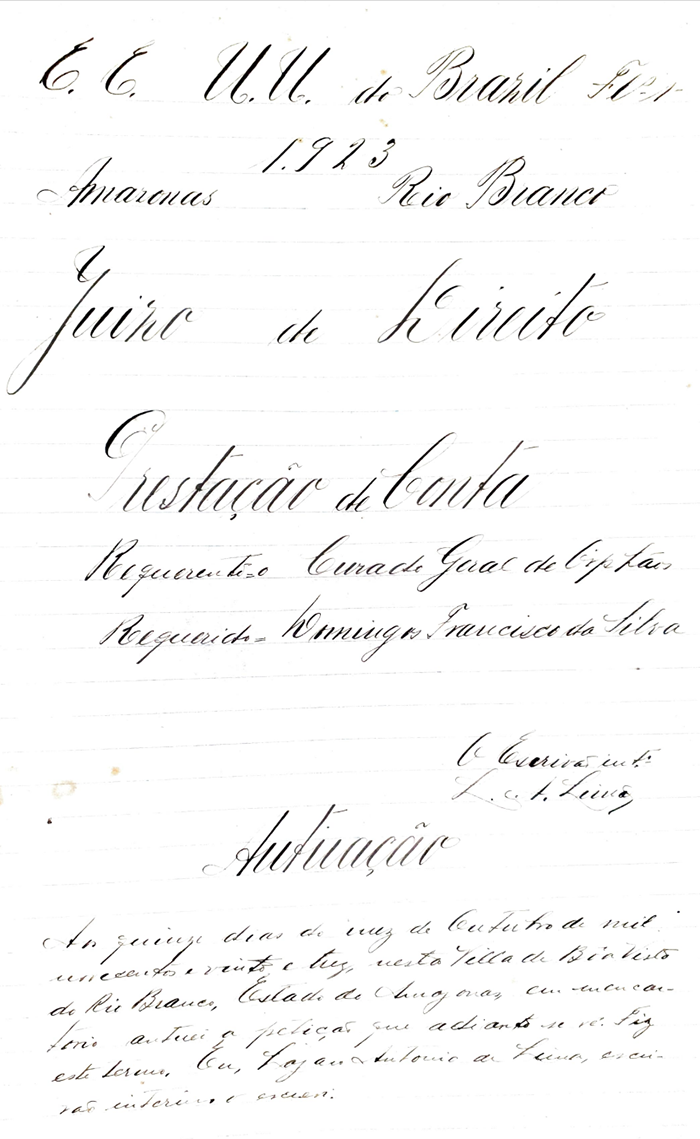 E. E. U. U. do Brazil Fls 1
1.923
Amazonas Rio Branco
Juizo de Direito
Prestação de Conta
Requerente=o Curado Geral de Orphãos
Requerido= Domingos Francisco da Silva
O Escrivão intº
L. A. Lima,
Autuação
Aos quinze dias do mez de Outubro de mil
novesentos e vinte e trez, nesta Villa de Bôa Vista
do Rio Branco, Estado do Amazonas, em meu car-
torio autuei a petição que adiante se vê. Fiz
este termo. Eu, Antonio de Lima, escri-
vão interino o escrevi.